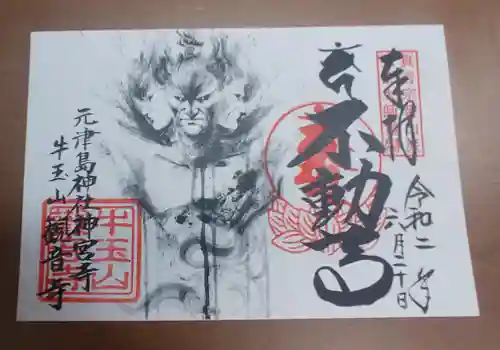 奉拝
令和二年
六月二十日
不動尊
元津島神社神宮寺
牛玉山觀音寺
牛玉山